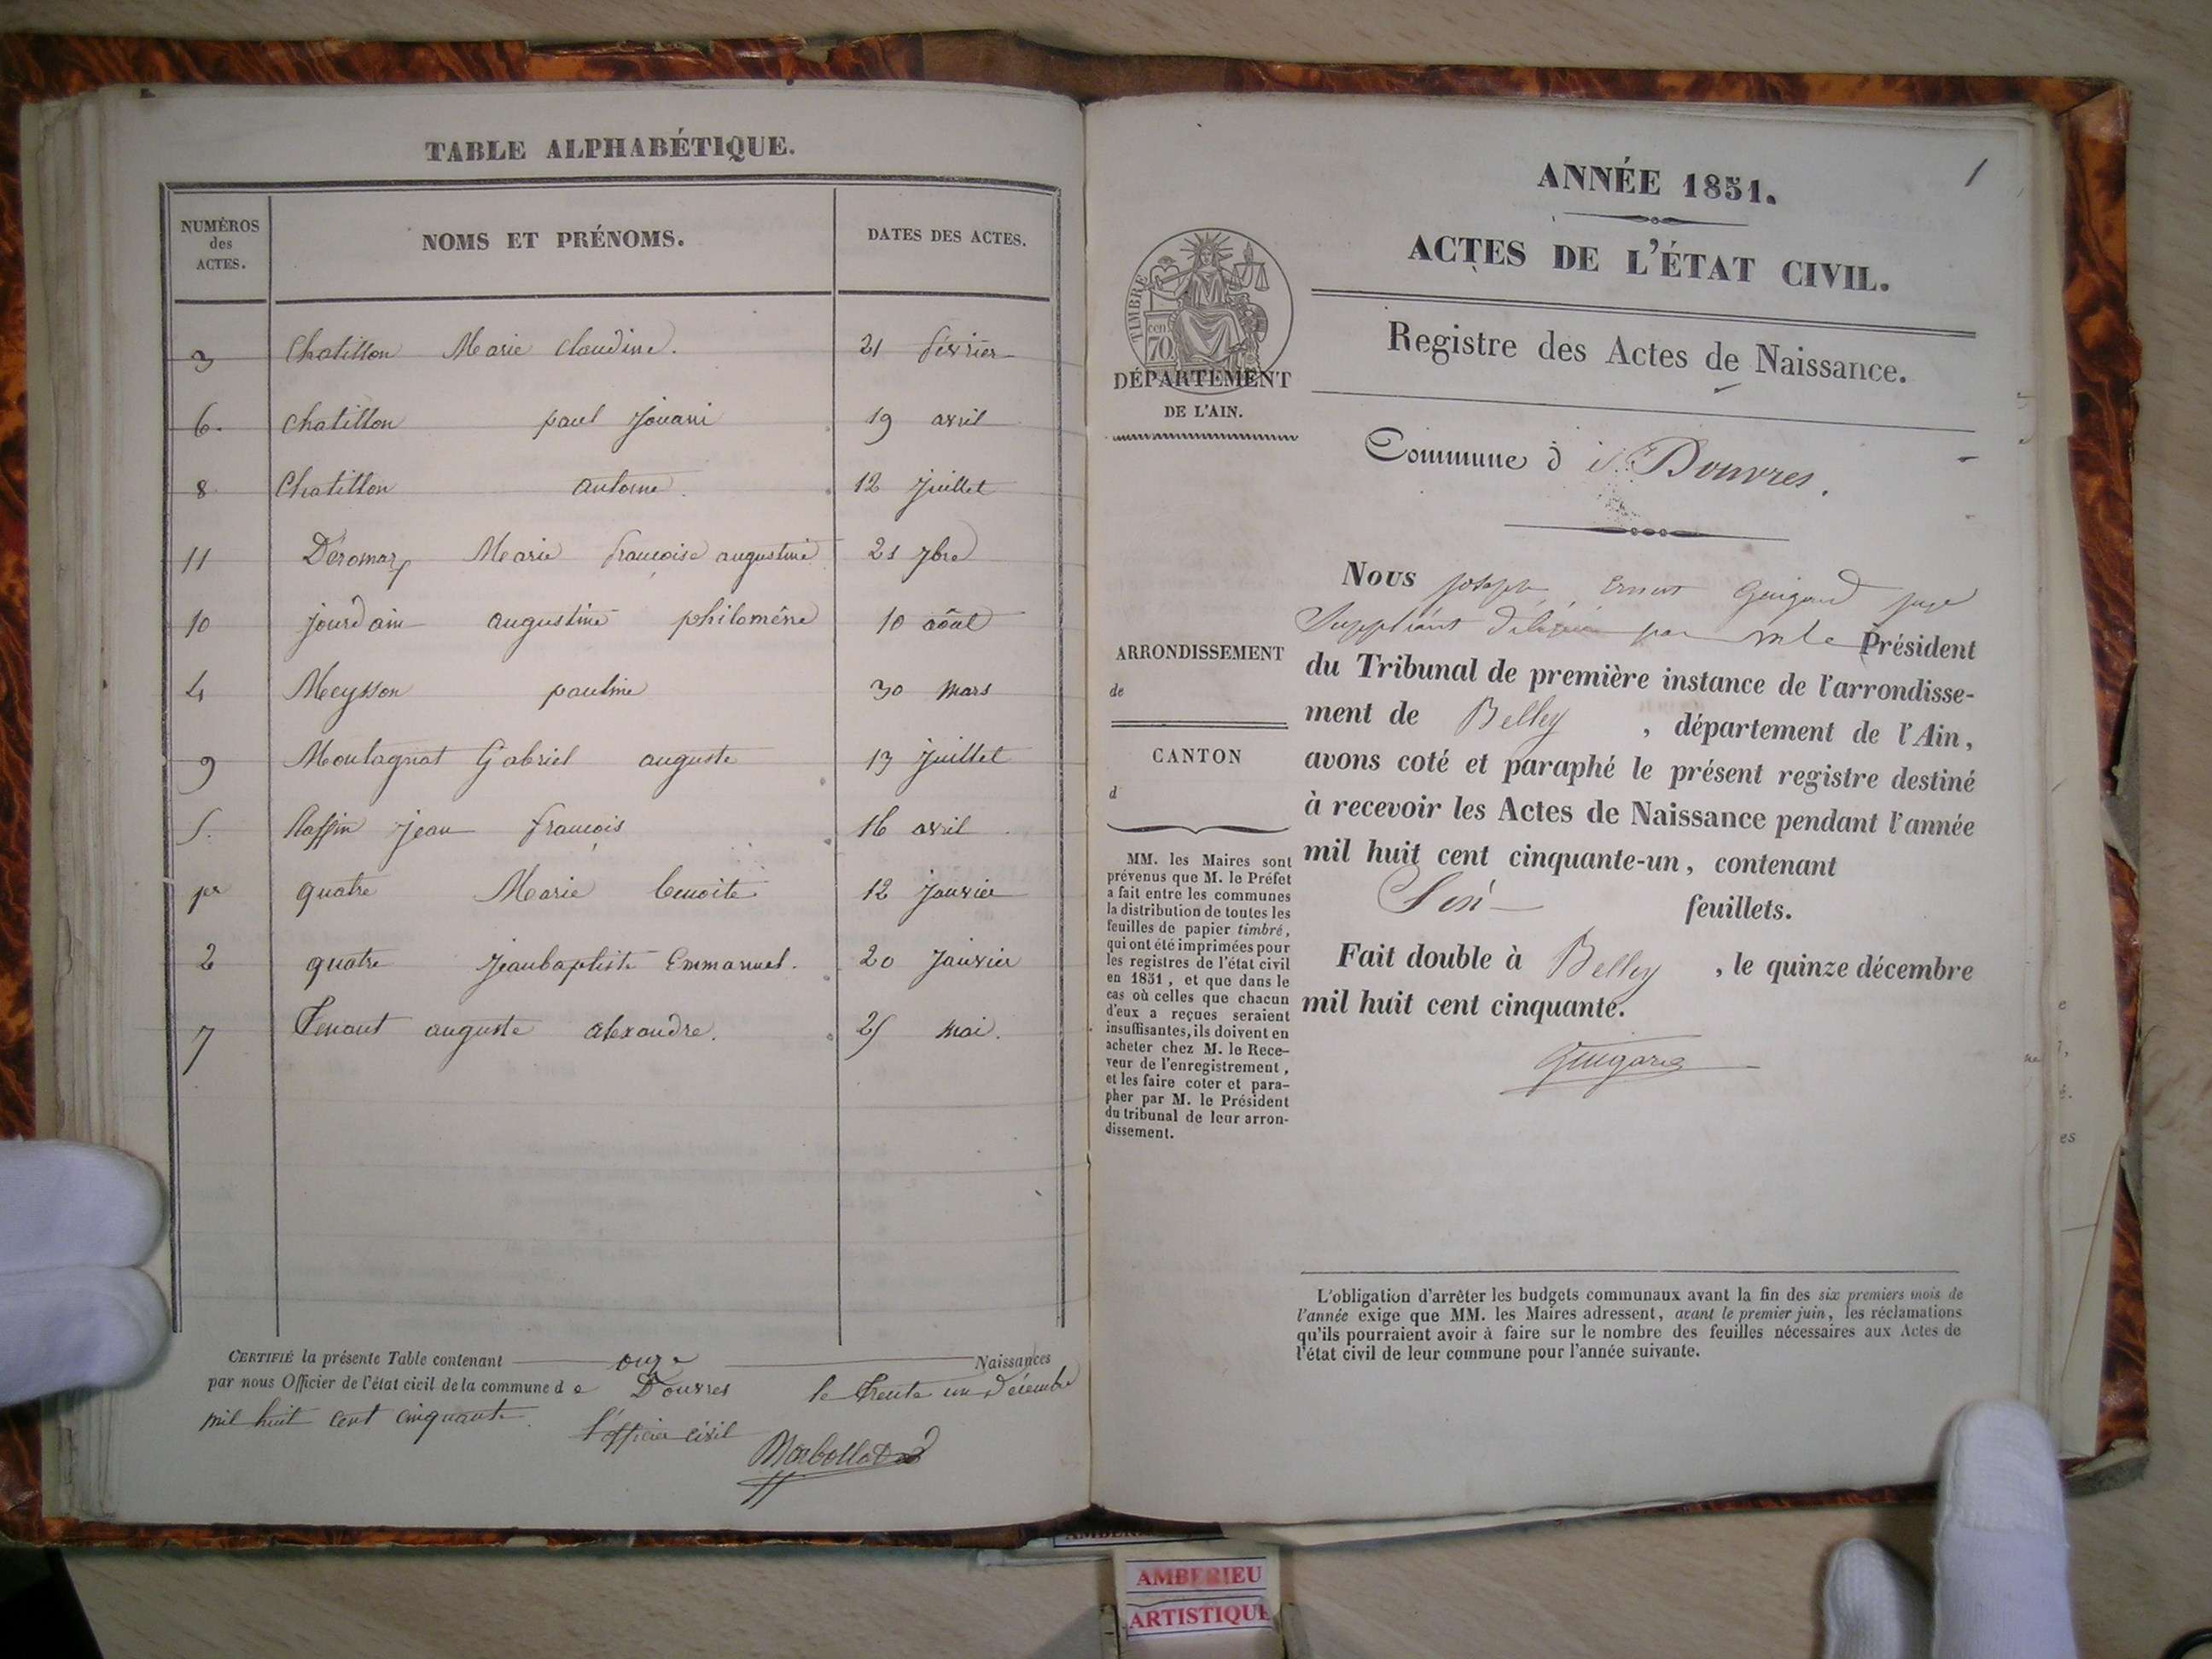 TABLE ALPHABÉTIQUE.
NUMÉROS des ACTES.
NOMS ET PRÉNOMS.
DATES DES ACTES.
3 Chatillon Marie Claudine. 21 février
6. Chatillon paul Jouani 19 avril
8 Chatillon antoine. 12 Juillet
11 Déromas Marie françoise augustine 21 7bre
10 jourdain augustine philomène 10 août
4 Meysson pauline 30 mars
9 Montagnat Gabriel auguste 13 Juillet
5. Raffin Jean françois 16 avril
per quatre Marie benoite 12 Janvier
2 quatre Jeanbaptiste Emmanuel. 20 Janvier
7 Tenant auguste alexandre. 25 mai.
CERTIFIÉ la présente Table contenant onze Naissances
par nous Officier de l'état civil de la commune de Douvres le trente un décembre
mil huit cent cinquante.
l'officier civil
1
ANNÉE 1851.
ACTES DE L'ÉTAT CIVIL.
TIMBRE
70 cen
DÉPARTEMENT
DE L'AIN.
Registre des Actes de Naissance.
Commune d Douvres.
ARRONDISSEMENT
de
CANTON
d
MM. les Maires sont
prévenus que M. le Préfet
a fait entre les communes
la distribution de toutes les
feuilles de papier timbré,
qui ont été imprimées pour
les registres de l'état civil
en 1851, et que dans le
cas où celles que chacun
d'eux a reçues seraient
insuffisantes, ils doivent en
acheter chez M. le Rece-
veur de l'enregistrement,
et les faire coter et para-
pher par M. le Président
du tribunal de leur arron-
dissement.
Nous joseph Ernest Guigard juge
Suppléant délégué par mr le Président
du Tribunal de première instance de l'arrondisse-
ment de Belley, département de l'Ain,
avons coté et paraphé le présent registre destiné
à recevoir les Actes de Naissance pendant l'année
mil huit cent cinquante-un, contenant
Six feuillets.
Fait double à Belley, le quinze décembre
mil huit cent cinquante.
Guigard
L'obligation d'arrêter les budgets communaux avant la fin des six premiers mois de
l'année exige que MM. les Maires adressent, avant le premier juin, les réclamations
qu'ils pourraient avoir à faire sur le nombre des feuilles nécessaires aux Actes de
l'état civil de leur commune pour l'année suivante.
AMBERIEU
ARTISTIQUE